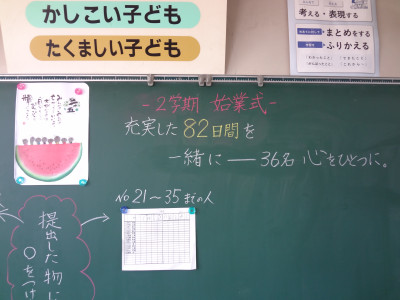 かしこい子ども
たくましい子ども
考える・表現する
まとめをする
ふりかえる
-2学期 始業式-
充実した82日間を
一緒に――36名 心をひとつに。
No 21～35までの人
提出した物に
○をつけ